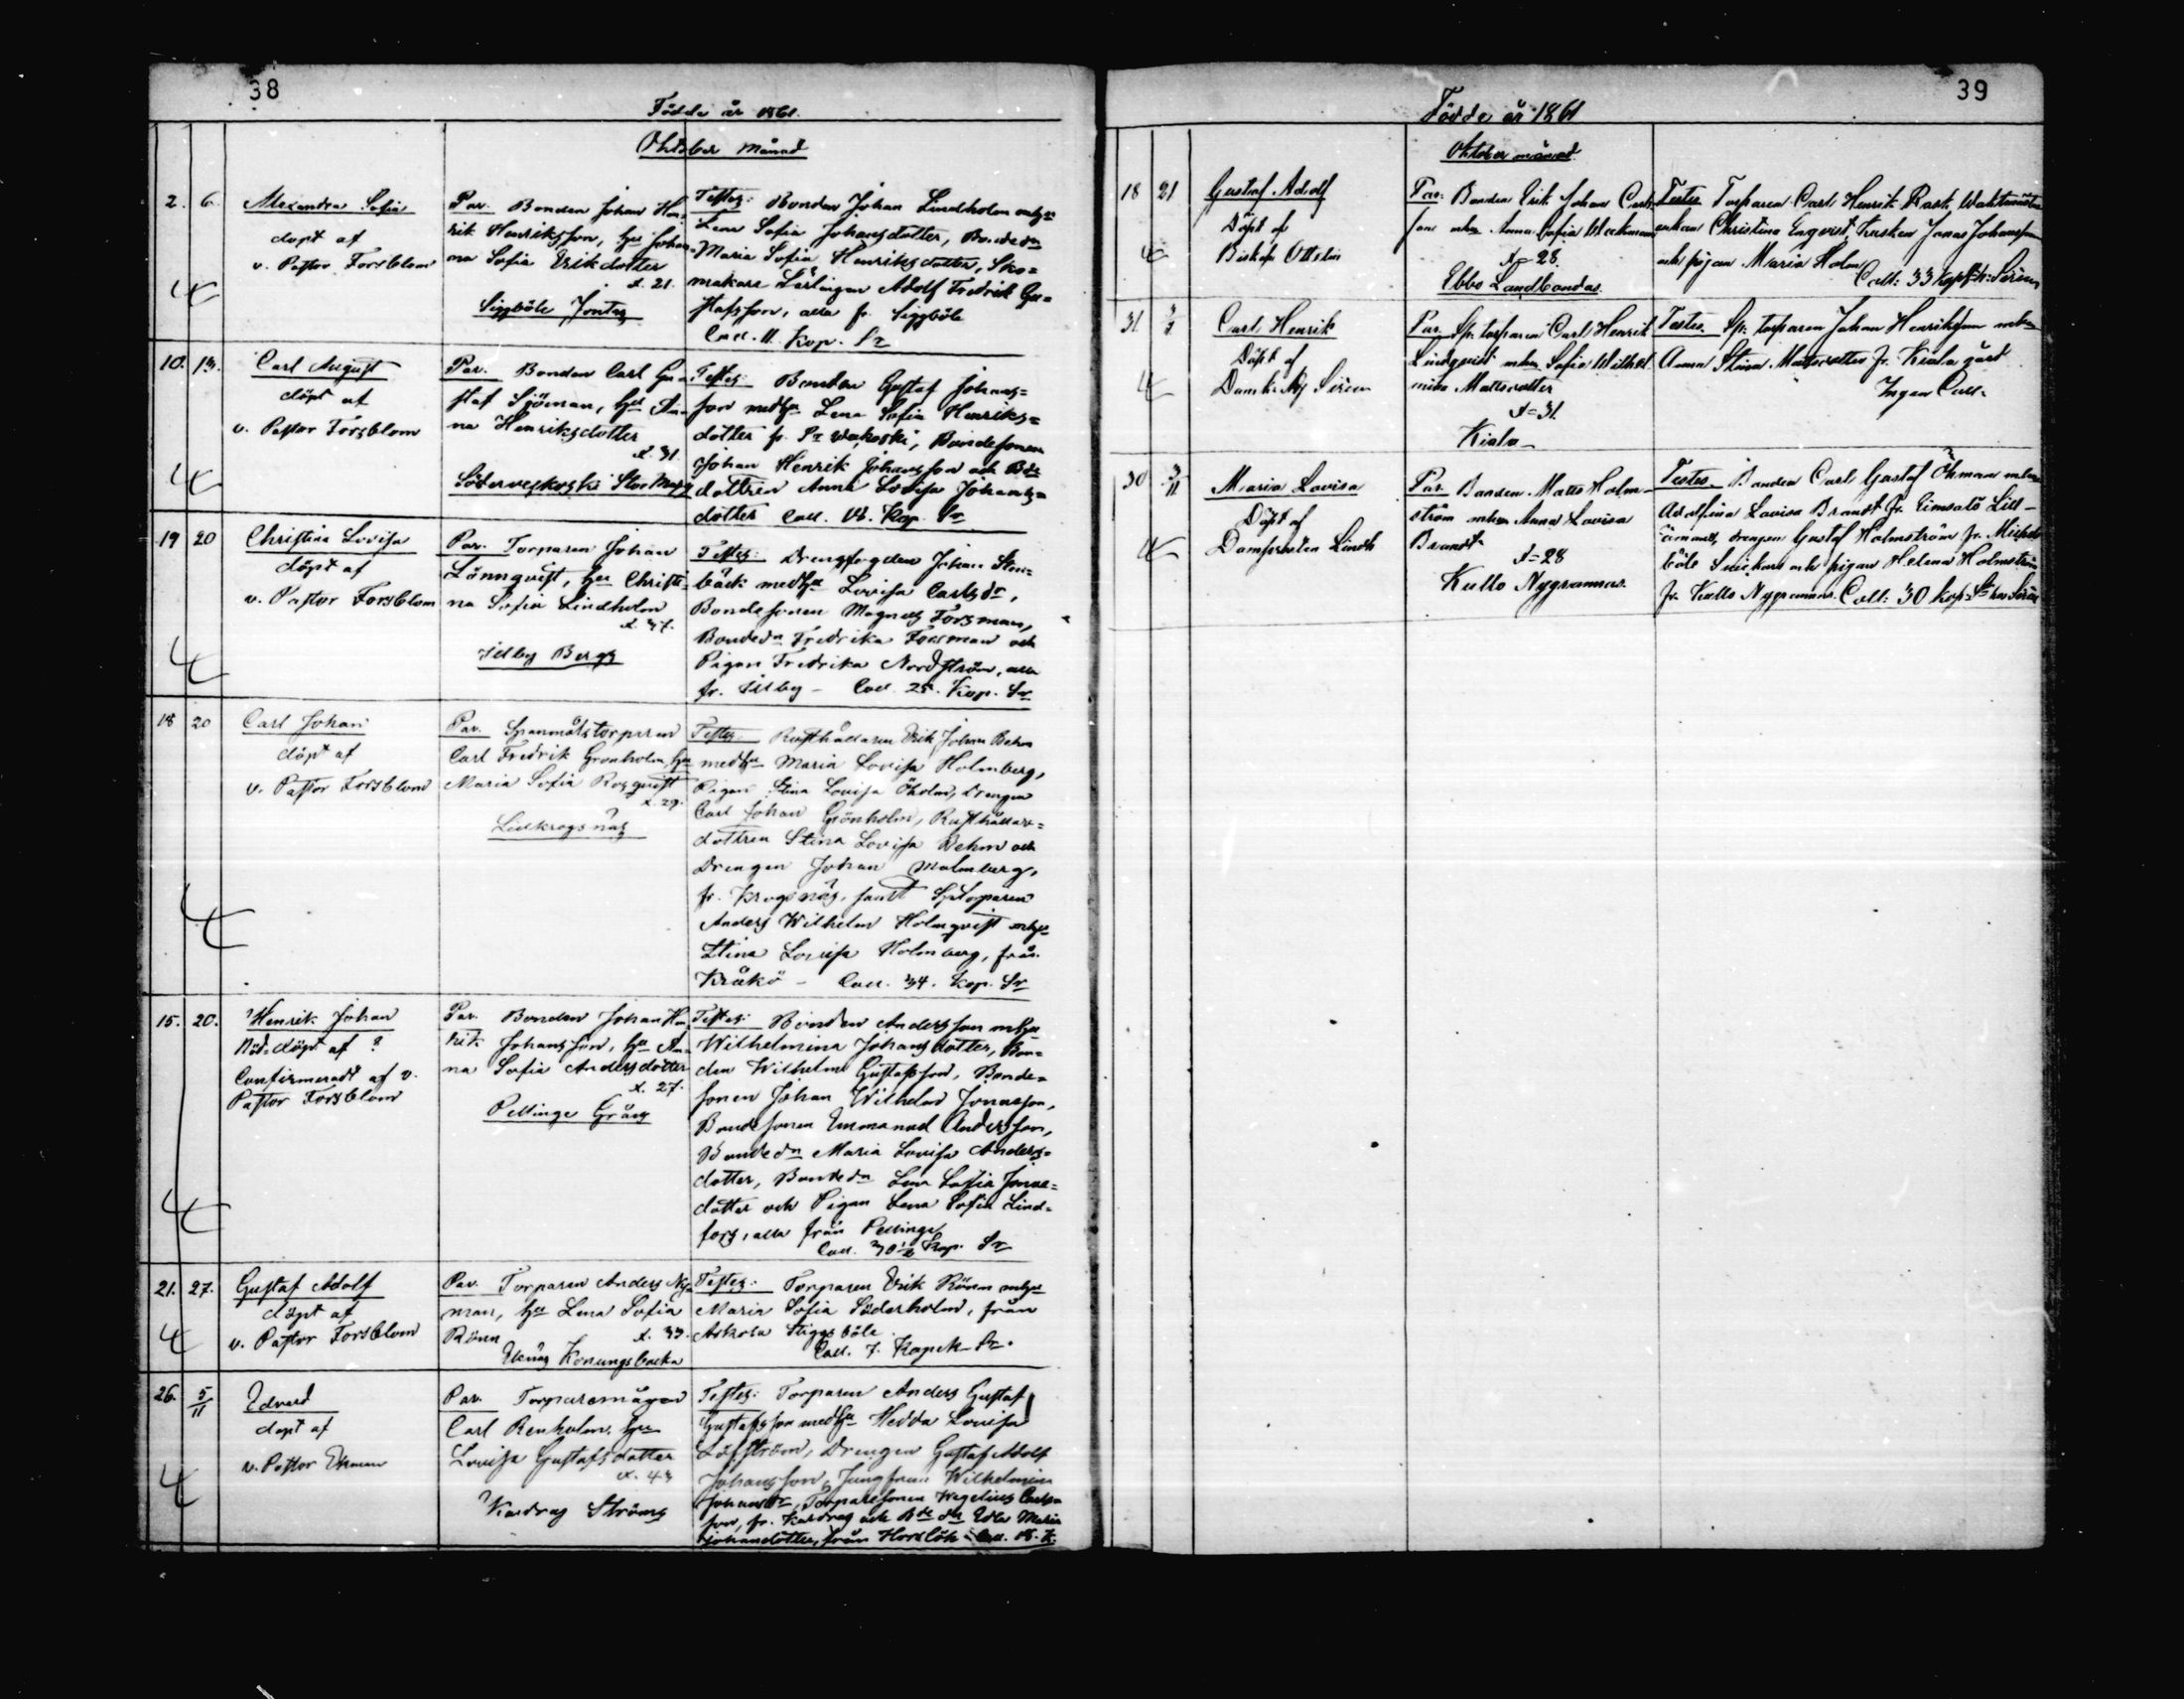 38
Födde år 1861.
Oktober Månad
2. 6. Alexandra Sofia
döpt af
v. Pastor Forsblom
Par. Bonden Johan Hen-
rik Henriksson, hu Johan-
na Sofia Eriksdotter
ä. 21.
Siggböle Jontas
Testes: Bonden Johan Lindholm mhu
Lena Sofia Johansdotter, Bonded
Maria Sofia Henriksdotter, Sko=
makare Lärlingen Adolf Fredrik Gu=
stafsson, alla fr. Siggböle
Coll. 11. Kop. Sr
10. 13. Carl August
döpt af
v. Pastor Forsblom
Par. Bonden Carl Gu-
staf Sjöman, hu An-
na Henriksdotter
ä. 31.
Söderveskoski Stor
Testes: Bonden Gustaf Johans=
son medhu Lena Sofia Henriks=
dotter fr. Sr Veskoski, Bondesonen
Johan Henrik Johansson och Bde
dottren Anna Lovisa Johans=
dotter Coll. Kop. Sr
19 20 Christina Lovisa
döpt af
v. Pastor Forsblom
Par. Torparen Johan
Lönnqvist, hu Christi-
na Sofia Lindholm
ä. 37.
Illby Bergs
Testes: Drengfogden Johan Sten=
bäck medhu Lovisa Carlsdr,
Bondesonen Magnus Forsman,
Bonded Fredrika Forsman och
Pigan Fredrika Nordström, alla
fr. Illby - Coll. 25. Kop. Sr
18 20 Carl Johan
döpt af
v. Pastor Forsblom
Par. Spanmålstorparen
Carl Fredrik Grönholm, hu
Maria Sofia Rosqvist
ä. 29.
Lillkrogsnäs
Testes: Rusthållaren Erik Johan Behm
medhu Maria Lovisa Holmberg,
Pigan Stina Lovisa Öholm, Drengen
Carl Johan Grönholm, Rusthållare=
dottren Stina Lovisa Behm och
Drengen Johan Malmberg,
fr. Krogsnäs, samt Sptorparen
Anders Wilhelm Holmqvist mhu
Stina Lovisa Holmberg, från
Kråkö - Coll. 34. Kop. Sr
15. 20. Henrik Johan
Nöd=döpt af ?
Confirmeradt af v.
Pastor Forsblom
Par. Bonden Johan Hen-
rik Johansson, hu An-
na Sofia Andersdotter
ä. 27.
Pellinge Gräns
Testes: Bonden Andersson mhu
Wilhelmina Johansdotter, Bon=
den Wilhelm Gustafsson, Bonde=
sonen Johan Wilhelm Jonasson,
Bondesonen Emmanuel Andersson,
Bonded Maria Lovisa Anders=
dotter, Bonded Lena Sofia Jonas=
dotter och Pigan Lena Sofia Lind=
fors, alla från Pellinge
Coll. 30½ Kop. Sr
21. 27. Gustaf Adolf
döpt af
v. Pastor Forsblom
Par. Torparen Anders Ny-
man, hu Lena Sofia
Rönn
ä. 33.
Eknäs Konungsbacka
Testes: Torparen Erik Rönn mhu
Maria Sofia Söderholm, från
Askola Stiggsböle.
Coll. 7. Kopek Sr.
26. 5/11 Edvard
döpt af
v. Pastor Ekman
Par. Torparemågen
Carl Renholm, hu
Lovisa Gustafsdotter
ä. 43
Kardrag Ströms
Testes: Torparen Anders Gustaf
Gustafsson medhu Hedda Lovisa
Löfström, Drengen Gustaf Adolf
Johansson, Jungfrun Wilhelmina
Johansdr, Torparesonen Wegelius Carls=
son, fr. Kardrag och Bde dr Edla Maria
Johansdotter, från Coll. K.
39
Födde år 1861
Oktober månad
18 21 Gustaf Adolf
Döpt af
Biskop Ottelin
Par: Bonden Erik Johan Carls-
son mhu Anna Sofia Weckman
ä=28.
Ebbo Landbondas
Testes Torparen Carl Henrik Rask,
enkan Christina Enqvist, Jonas Johansson
och pigan Maria Holm
Coll: 33 kop Sr: Sirén
31 Carl Henrik
Döpt af
Domk: Adj Sirén
Par. Sp: torparen Carl Henrik
Lindqvist mhu Sofia Wilhel-
mina Mattsdotter
ä=31.
Kiala
Testes. Sp: torparen Johan Henriksson mhu
Anna Stina Mattsdotter fr. Kiala gård
Ingen Coll.
30 3/11 Maria Lovisa
Döpt af
Domprosten Lindh
Par. Bonden Matts Holm-
ström mhu Anna Lovisa
Brandt
ä=28
Kullo Nygrannas.
Testes. Bonden Carl Gustaf Öhman mhu
Adolfina Lovisa Brandt fr. Emsalö Lill-
ömans, drengen Gustaf Holmström fr. Mickels
böle Snickars och pigan Helena Holmström
fr. Kullo Nygrannas. Coll: 30 kop: Sr hos Sirén